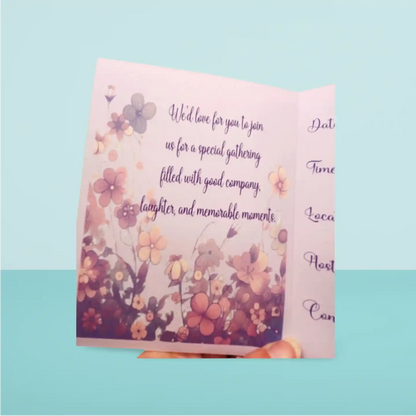 We'd love for you to join
us for a special gathering
filled with good company,
laughter, and memorable moments.
Dat
Time
Loca
Host
Con